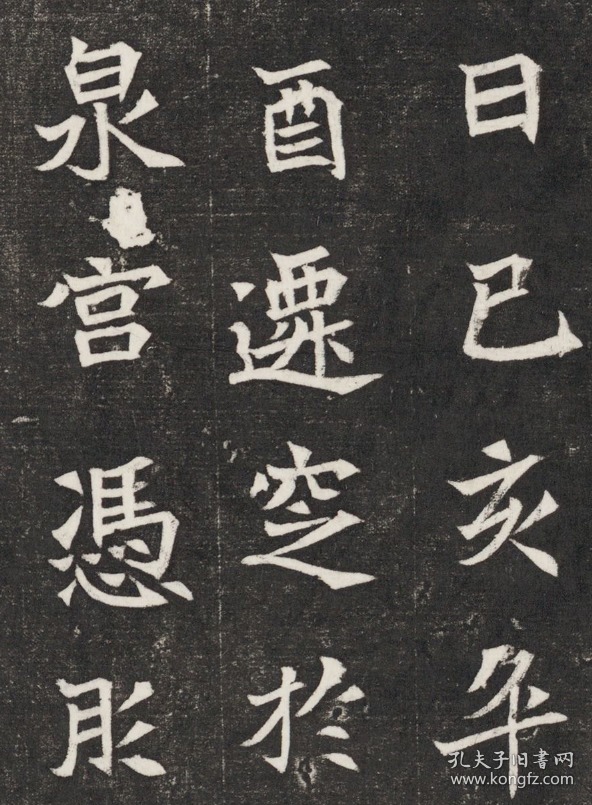 日己亥卒
酉遷窆於
泉宮憑
孔夫子旧书网
www.kongfz.com